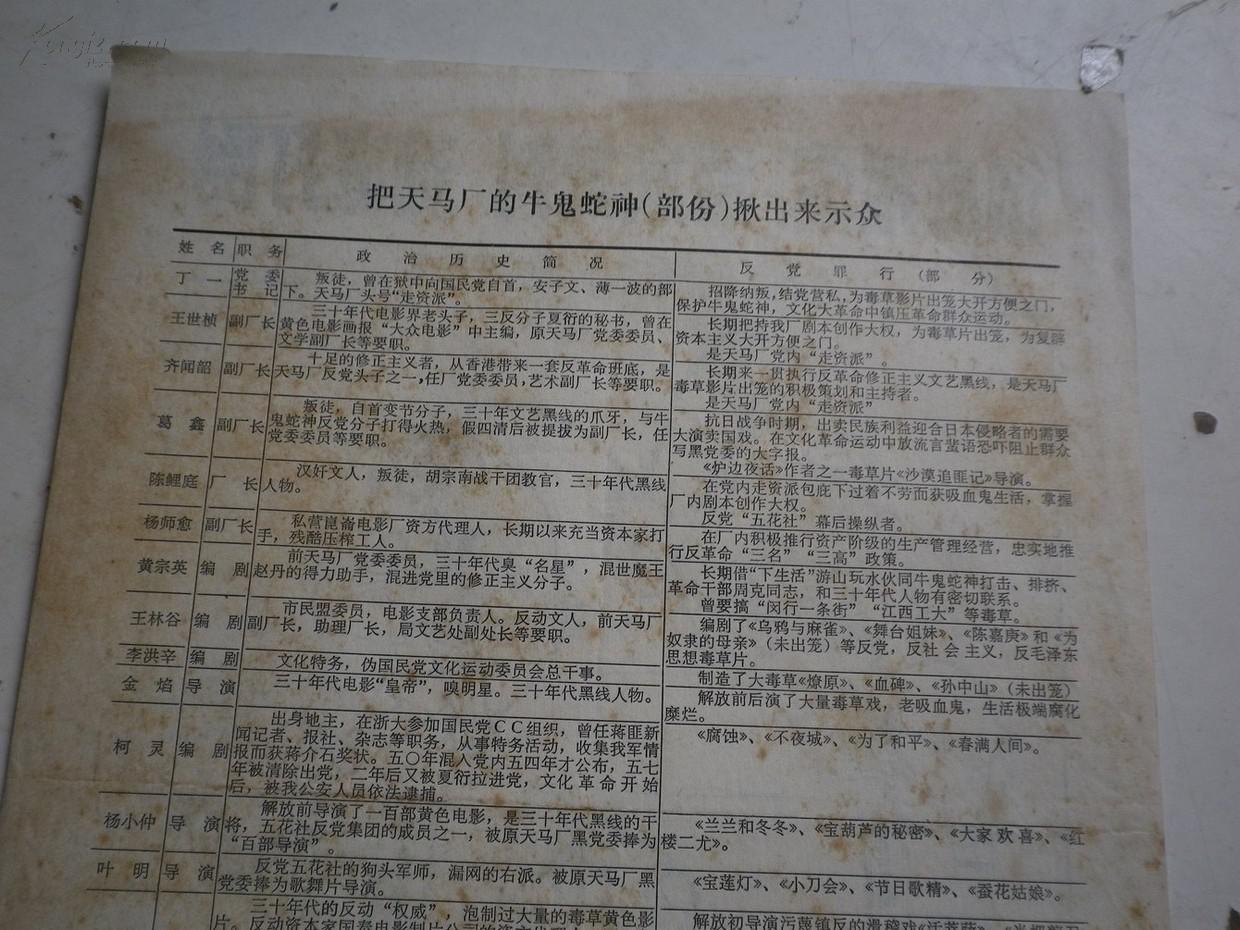 把天马厂的牛鬼蛇神(部份)揪出来示众
姓名 职务 政治历史简况 反党罪行(部分)
丁一 党委书记
叛徒，曾在狱中向国民党自首，安子文、薄一波的部
下。天马厂头号“走资派”。
招降纳叛，结党营私，为毒草影片出笼大开方便之门，
保护牛鬼蛇神，文化大革命中镇压革命群众运动。
王世桢 副厂长
三十年代电影界老头子，三反分子夏衍的秘书，曾在
黄色电影画报“大众电影”中主编，原天马厂党委委员、
文学副厂长等要职。
长期把持我厂剧本创作大权，为毒草片出笼，为复辟
资本主义大开方便之门。
是天马厂党内“走资派”。
齐闻韶 副厂长
十足的修正主义者，从香港带来一套反革命班底，是
天马厂反党头子之一，任厂党委委员，艺术副厂长等要职。
长期来一贯执行反革命修正主义文艺黑线，是天马厂
毒草影片出笼的积极策划和主持者。
是天马厂党内“走资派”
葛鑫 副厂长
叛徒，自首变节分子，三十年文艺黑线的爪牙，与牛
鬼蛇神反党分子打得火热，假四清后被提拔为副厂长，任
党委委员等要职。
抗日战争时期，出卖民族利益迎合日本侵略者的需要
大演卖国戏。在文化革命运动中放流言蜚语恐吓阻止群众
写黑党委的大字报。
《炉边夜话》作者之一毒草片《沙漠追匪记》导演。
陈鲤庭 厂长
汉奸文人，叛徒，胡宗南战干团教官，三十年代黑线
人物。
在党内走资派包庇下过着不劳而获吸血鬼生活，掌握
厂内剧本创作大权。
反党“五花社”幕后操纵者。
杨师愈 副厂长
私营崑崙电影厂资方代理人，长期以来充当资本家打
手，残酷压榨工人。
在厂内积极推行资产阶级的生产管理经营，忠实地推
行反革命“三名”“三高”政策。
黄宗英 编剧
前天马厂党委委员，三十年代臭“名星”，混世魔王
赵丹的得力助手，混进党里的修正主义分子。
长期借“下生活”游山玩水伙同牛鬼蛇神打击、排挤、
革命干部周克同志，和三十年代人物有密切联系。
曾要搞“闵行一条街”“江西工大”等毒草。
王林谷 编剧
市民盟委员，电影支部负责人。反动文人，前天马厂
副厂长，助理厂长，局文艺处副处长等要职。
编剧了《乌鸦与麻雀》、《舞台姐妹》、《陈嘉庚》和《为
奴隶的母亲》（未出笼）等反党，反社会主义，反毛泽东
思想毒草片。
李洪辛 编剧
文化特务，伪国民党文化运动委员会总干事。
制造了大毒草《燎原》、《血碑》、《孙中山》（未出笼）
金焰 导演
三十年代电影“皇帝”，嗅明星。三十年代黑线人物。
解放前后演了大量毒草戏，老吸血鬼，生活极端腐化
糜烂。
柯灵 编剧
出身地主，在浙大参加国民党CC组织，曾任蒋匪新
闻记者、报社、杂志等职务，从事特务活动，收集我军情
报而获蒋介石奖状。五〇年混入党内五四年才公布，五七
年被清除出党，二年后又被夏衍拉进党，文化革命开始
后，被我公安人员依法逮捕。
《腐蚀》、《不夜城》、《为了和平》、《春满人间》。
杨小仲 导演
解放前导演了一百部黄色电影，是三十年代黑线的干
将，五花社反党集团的成员之一，被原天马厂黑党委捧为
“百部导演”。
《兰兰和冬冬》、《宝葫芦的秘密》、《大家欢喜》、《红
楼二尤》。
叶明 导演
反党五花社的狗头军师，漏网的右派。被原天马厂黑
党委捧为歌舞片导演。
《宝莲灯》、《小刀会》、《节日歌精》、《蚕花姑娘》。
三十年代的反动“权威”，泡制过大量的毒草黄色影